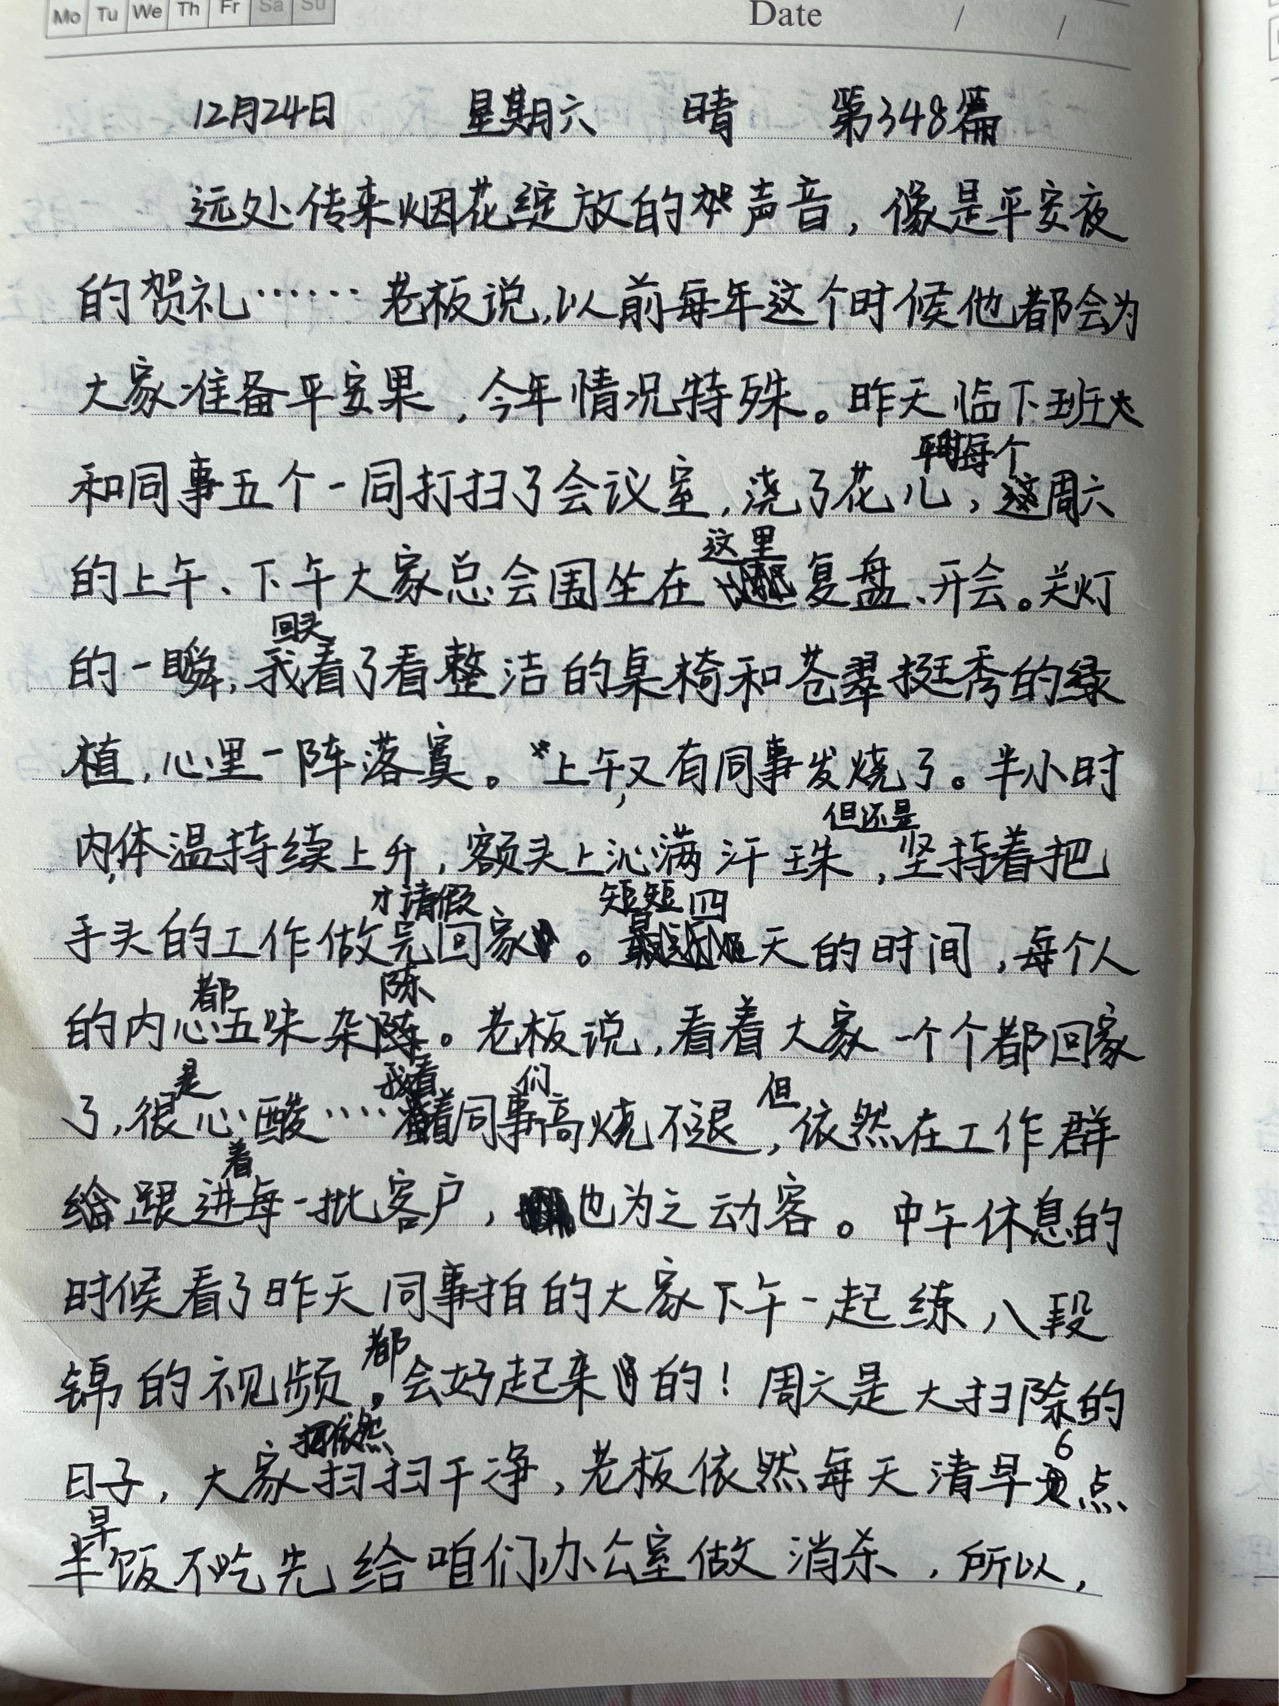 Mo Tu We Th Fr Sa Su
Date / /
12月24日 星期六 晴 第348篇
远处传来烟花绽放的声音，像是平安夜
的贺礼……老板说，以前每年这个时候他都会为
大家准备平安果，今年情况特殊。昨天临下班
和同事五个一同打扫了会议室，浇了花儿，平时每个周六
的上午、下午大家总会围坐在这里复盘、开会。关灯
的一瞬，我回头看了看整洁的桌椅和苍翠挺秀的绿
植，心里一阵落寞。上午，又有同事发烧了。半小时
内，体温持续上升，额头上沁满汗珠，但还是坚持着把
手头的工作做完才请假回家。短短四天的时间，每个人
的内心都五味杂陈。老板说，看着大家一个个都回家
了，很是心酸……我看着同事们高烧不退，但依然在工作群
给跟进着每一批客户，也为之动容。中午休息的
时候看了昨天同事拍的大家下午一起练八段
锦的视频。都会好起来的！周六是大扫除的
日子，大家依然扫扫干净，老板依然每天清早6点
早饭不吃先给咱们办公室做消杀，所以，